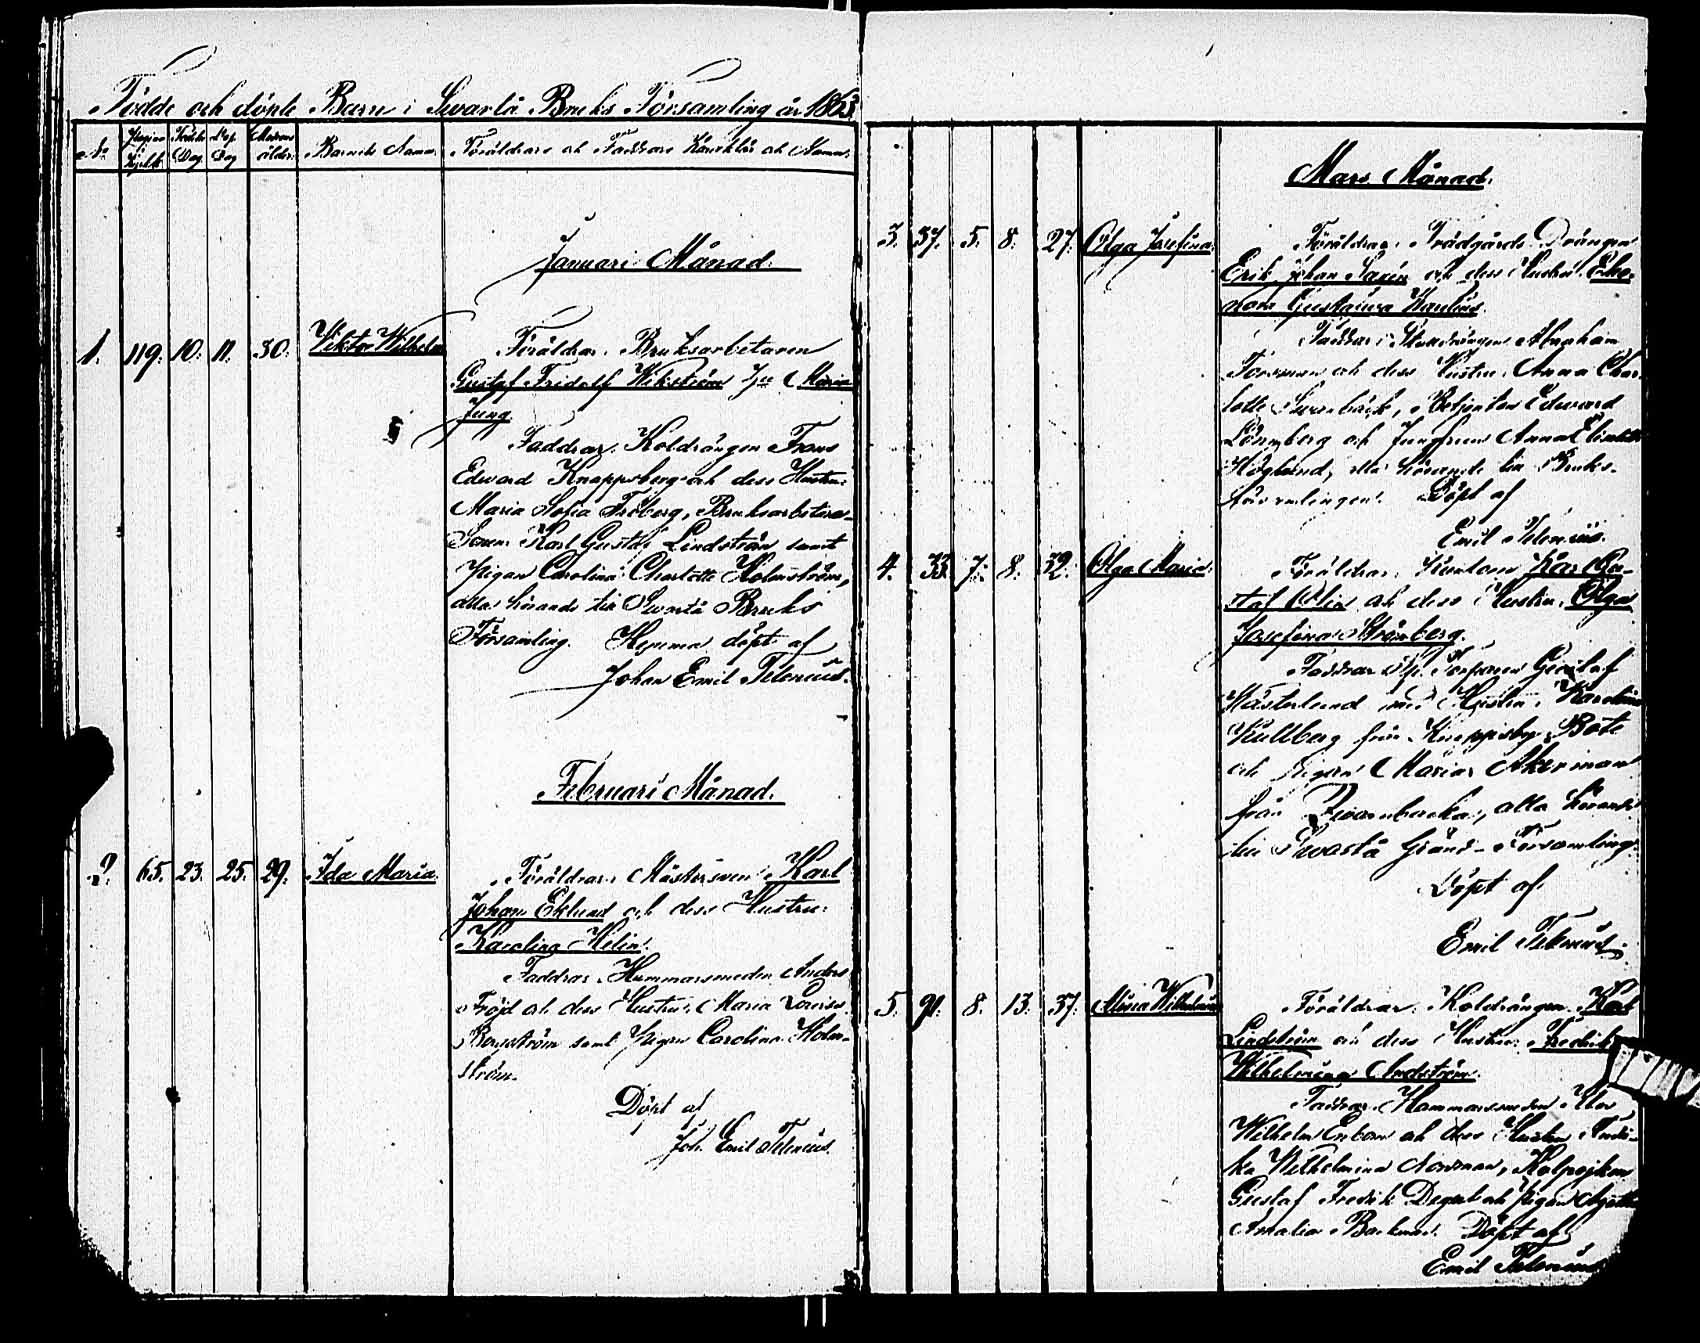 Födde och döpte Barn i Svartå Bruks Församling år 1863.
No Pagina Födelse Dag Dop Dag Modrens ålder Barnets Namn Föräldrars och Faddrars Karaktär och Namn.
Januari Månad.
1. 119. 10. 11. 30. Viktor Wilhelm Föräldrar: Bruksarbetaren
Gustaf Fridolf Wikström Maria
Jung
Faddrar: Koldrängen Frans
Edward Knappsberg och dess Hustru
Maria Sofia Fröberg, Bruksarbetare-
Sonen Karl Gustaf Lindström samt
Pigan Carolina Charlotte Holmström,
alla hörande till Svartå Bruks
Församling. Hemma döpt af
Johan Emil Telenius.
Februari Månad.
2. 65. 23. 25. 29. Ida Maria Föräldrar: Mästersven Karl
Johan Eklund och dess Hustru
Karolina Helin.
Faddrar: Hammarsmeden Anders
Fröjd och dess Hustru Maria Lovisa
Bergström samt Pigan Carolina Holm-
ström.
Döpt af
Joh. Emil Telenius.
Mars Månad.
3. 37. 5. 8. 27. Olga Josefina Föräldrar: Trädgårds Drängen
Erik Johan Saxén och dess Hustru
Gustava
Faddrar: Abraham
Forsman och dess Hustru Anna Char-
lotte, Betjenten Edward
Lönnberg och Jungfrun Anna
Höglund, alla hörande till Bruks-
församlingen. Döpt af
Emil Telenius.
4. 33. 7. 8. 32. Olga Maria Föräldrar: Karl Gu-
staf och dess Hustru Olga
Josefina Strömberg.
Faddrar: Torparen Gustaf
Westerlund med Hustru Karolina
Kullberg från Knappsby Böle
och Pigan Maria Åkerman
från, alla hörande
till Svartå Församling.
Döpt af
Emil Telenius.
5. 91. 8. 13. 37. Maria Wilhelmina Föräldrar: Koldrängen Karl
Lindström och dess Hustru Fredrika
Wilhelmina
Faddrar: Hammarsmeden
Wilhelm och dess Hustru
Wilhelmina Norrman, Kolpojken
Gustaf Fredrik och Pigan
Amalia Backman. Döpt af
Emil Telenius.